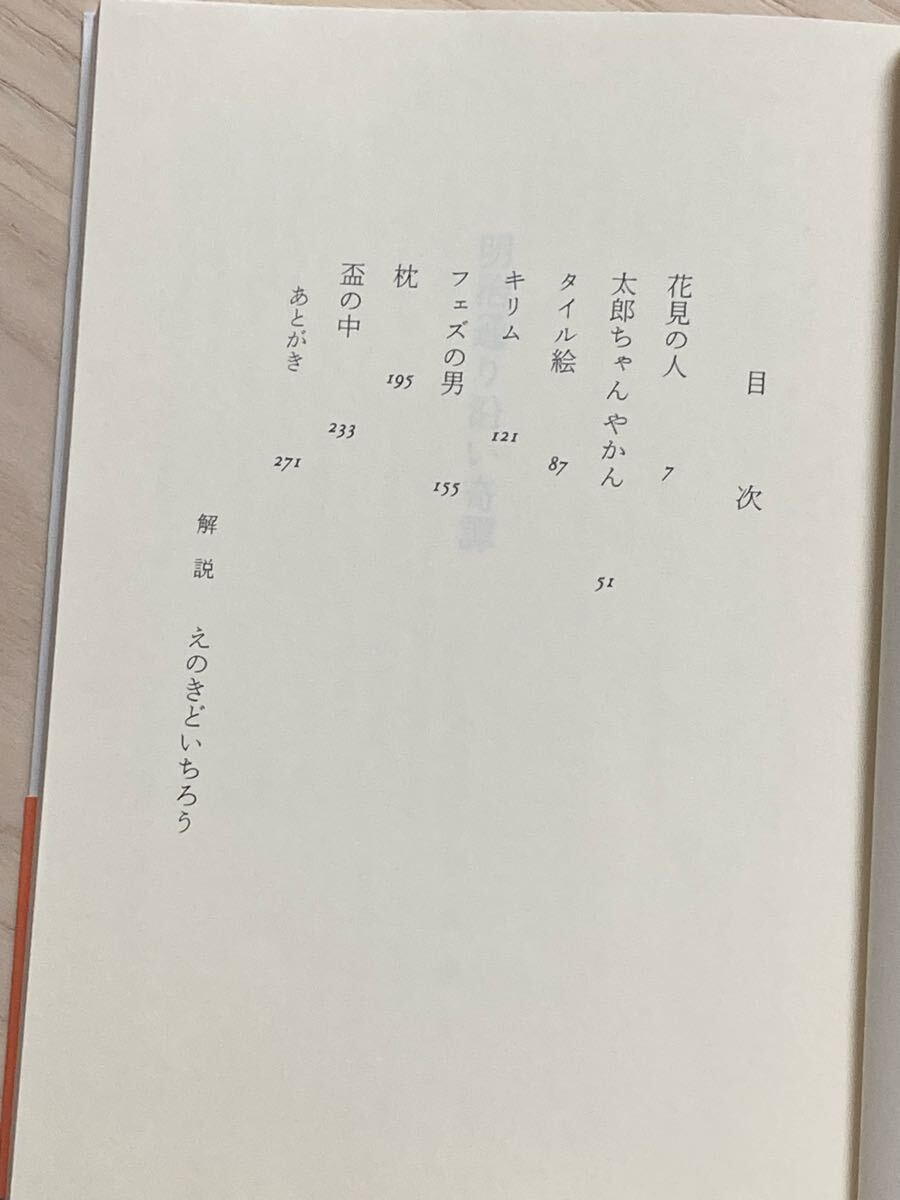 目次
花見の人 7
太郎ちゃんやかん 51
タイル絵 87
キリム 121
フェズの男 155
枕 195
盃の中 233
あとがき 271
解説 えのきどいちろう